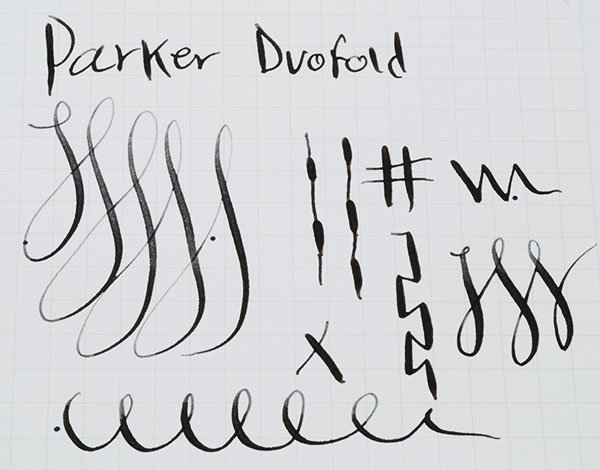 Parker Duofold